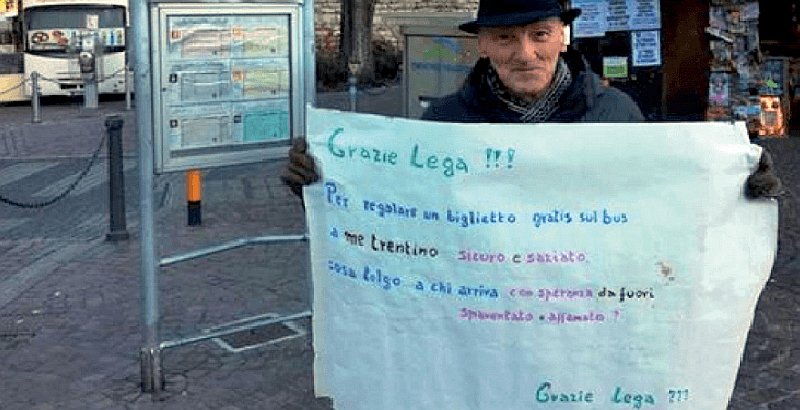 Grazie Lega !!!
Per regalare un biglietto gratis sul bus
a me trentino sicuro e saziato
cosa tolgo a chi arriva con speranza da fuori
spaventato e affamato ?
Grazie Lega ???